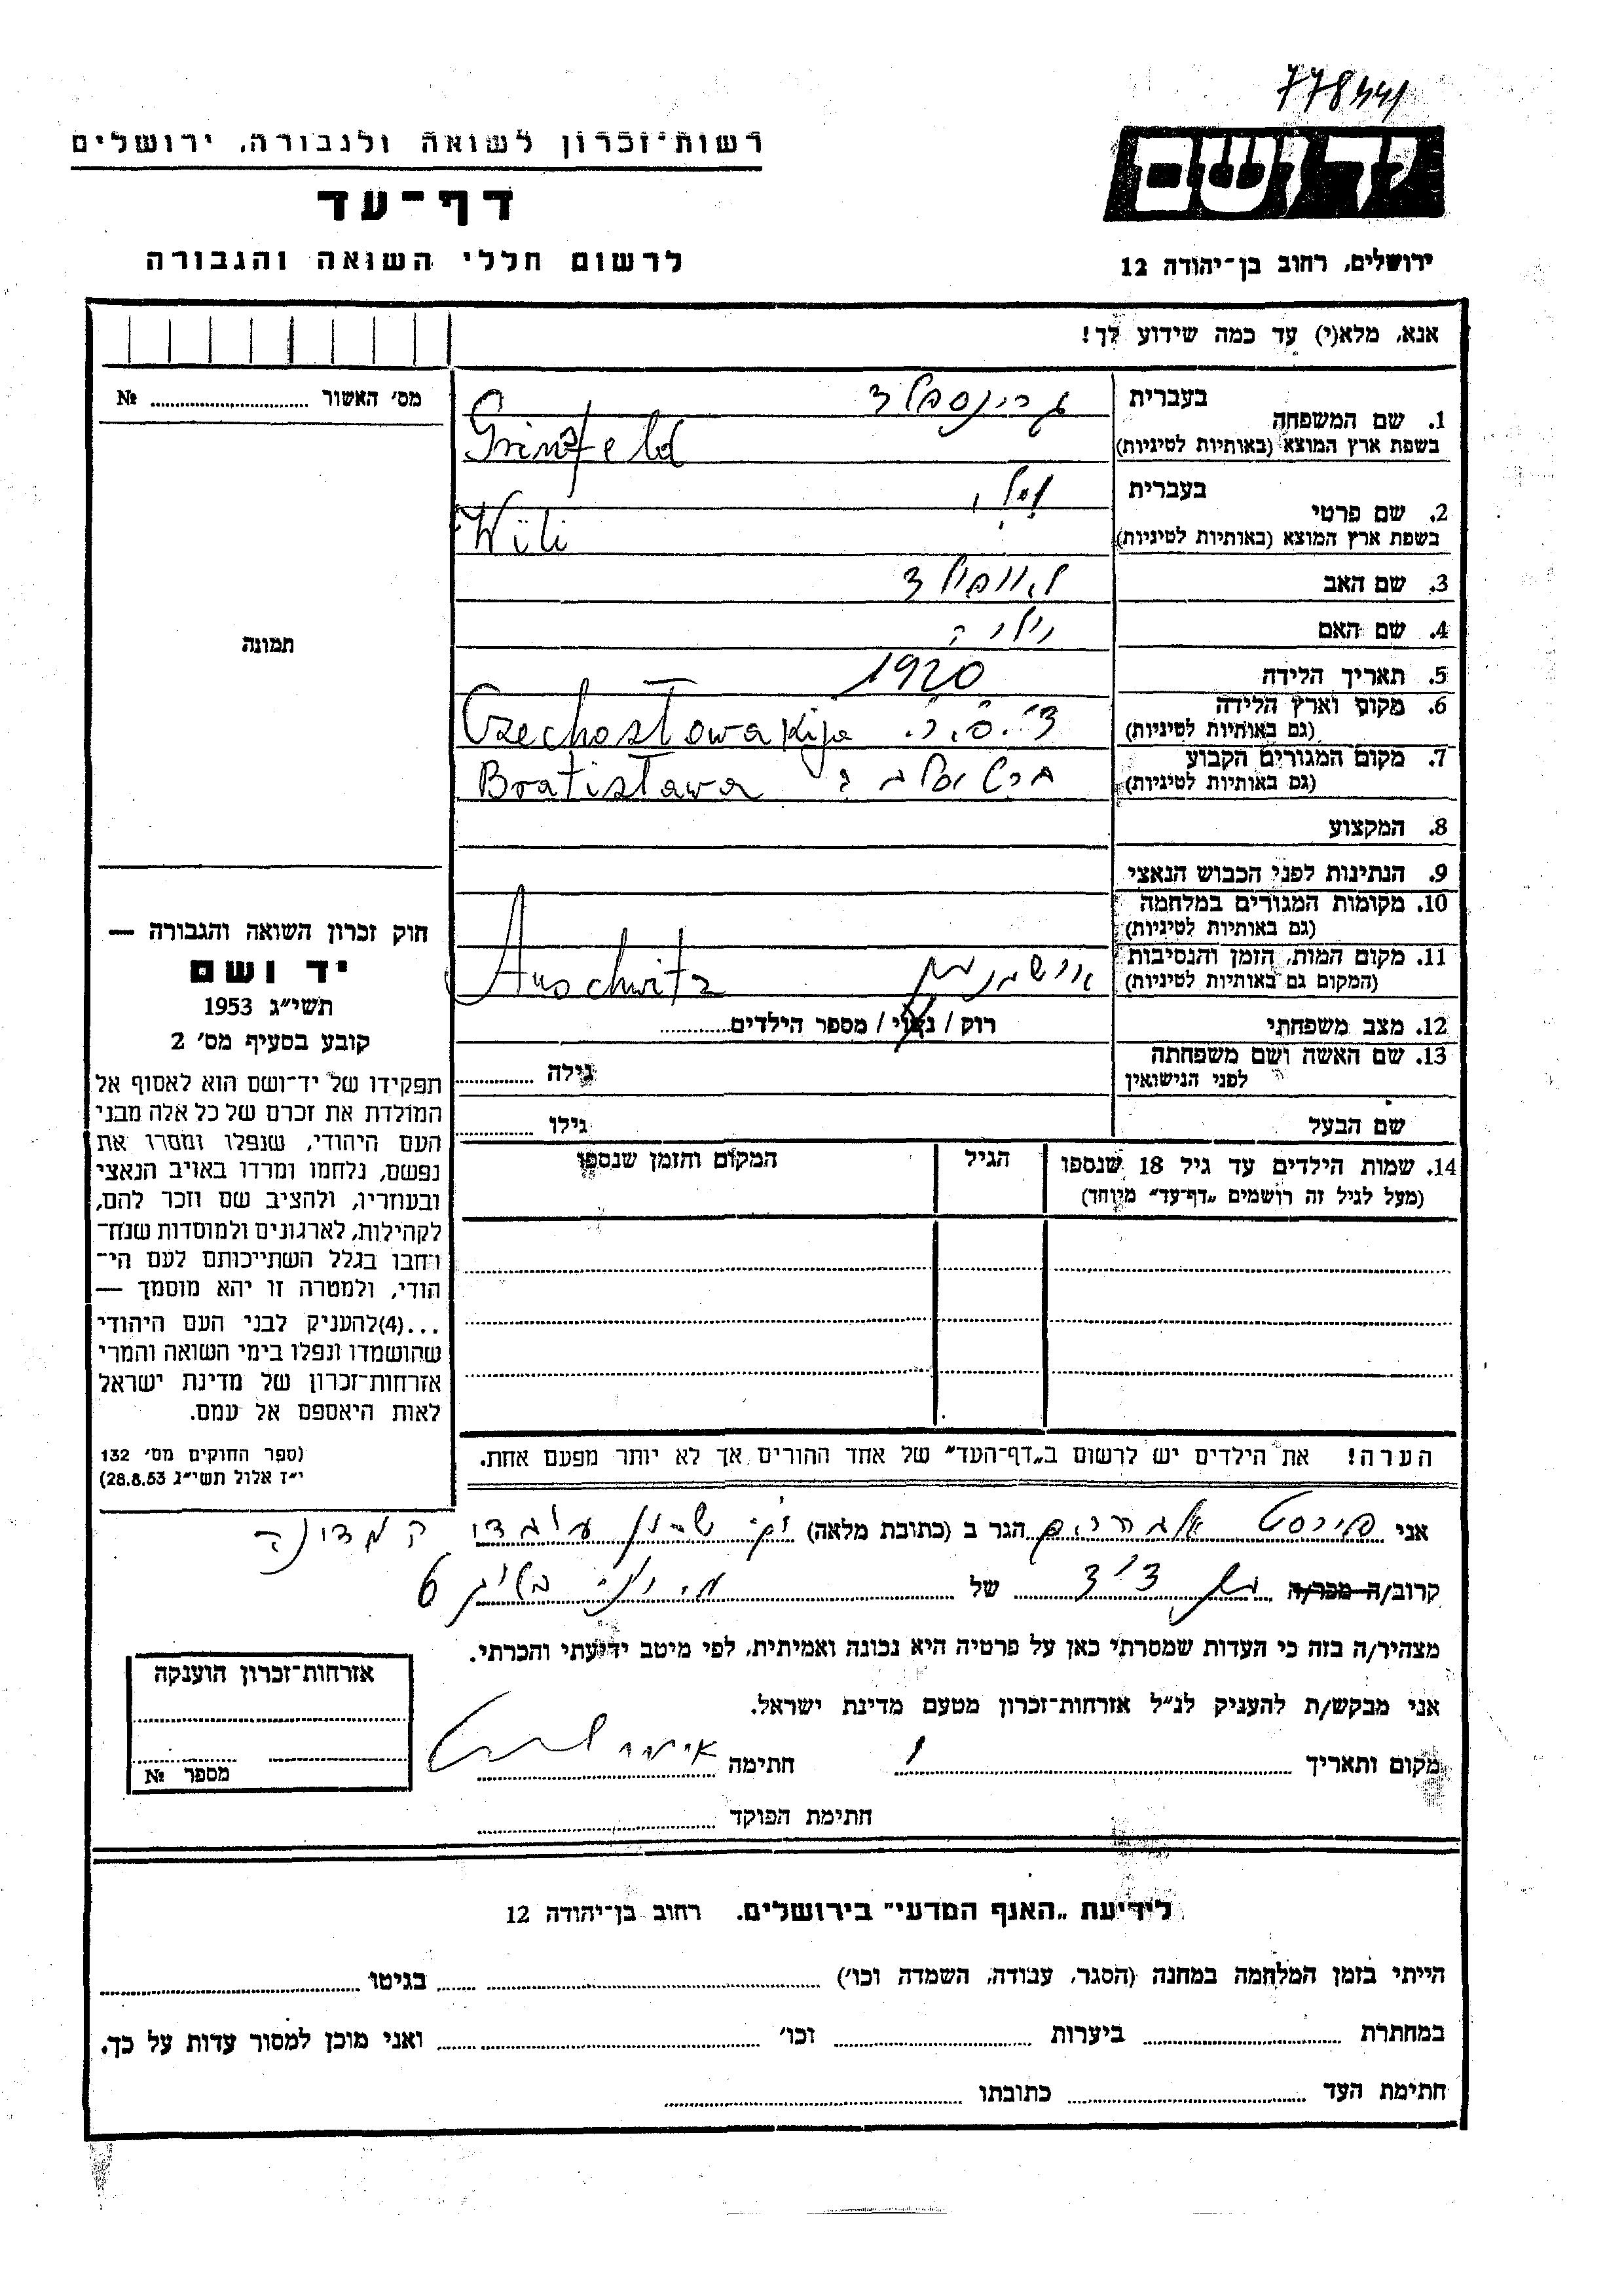 77844/
רשות־זכרון לשואה ולגבורה, ירושלים
דף־עד
לרשום חללי השואה והגבורה
יד ושם
ירושלים, רחוב בן־יהודה 12
אנא, מלא(י) עד כמה שידוע לך!
מס׳ האשור № 
1. שם המשפחה
בעברית גרינספלד
בשפת ארץ המוצא (באותיות לטיניות) Grinsfeld
2. שם פרטי
בעברית וילי
בשפת ארץ המוצא (באותיות לטיניות) Wili
3. שם האב
4. שם האם
5. תאריך הלידה 1920
6. מקום וארץ הלידה
(גם באותיות לטיניות) Czechosłowakija
7. מקום המגורים הקבוע
(גם באותיות לטיניות) Bratisława
8. המקצוע
9. הנתינות לפני הכבוש הנאצי
10. מקומות המגורים במלחמה
(גם באותיות לטיניות)
11. מקום המות, הזמן והנסיבות
(המקום גם באותיות לטיניות) Auschwitz
12. מצב משפחתי רוק / נשוי / מספר הילדים
13. שם האשה ושם משפחתה
לפני הנישואין גילה
שם הבעל גילו
14. שמות הילדים עד גיל 18 שנספו
(מעל לגיל זה רושמים „דף־עד״ מיוחד)
הגיל
המקום והזמן שנספו
הערה! את הילדים יש לרשום ב„דף־העד״ של אחד ההורים אך לא יותר מפעם אחת.
תמונה
חוק זכרון השואה והגבורה —
יד ושם
תשי״ג 1953
קובע בסעיף מס׳ 2
תפקידו של יד־ושם הוא לאסוף אל
המולדת את זכרם של כל אלה מבני
העם היהודי, שנפלו ומסרו את
נפשם, נלחמו ומרדו באויב הנאצי
ובעוזריו, ולהציב שם וזכר להם,
לקהילות, לארגונים ולמוסדות שנח־
רחבו בגלל השתייכותם לעם הי־
הודי, ולמטרה זו יהא מוסמך —
...(4)להעניק לבני העם היהודי
שהושמדו ונפלו בימי השואה והמרי
אזרחות־זכרון של מדינת ישראל
לאות היאספם אל עמם.
(ספר החוקים מס׳ 132
י״ז אלול תשי״ג 28.8.53)
אני הגר ב (כתובת מלאה)
קרוב/ה מכר/ה של
מצהיר/ה בזה כי העדות שמסרתי כאן על פרטיה היא נכונה ואמיתית, לפי מיטב ידיעתי והכרתי.
אני מבקש/ת להעניק לנ״ל אזרחות־זכרון מטעם מדינת ישראל.
מקום ותאריך חתימה
חתימת הפוקד
אזרחות־זכרון הוענקה
מספר №
לידיעת „האגף המדעי״ בירושלים, רחוב בן־יהודה 12
הייתי בזמן המלחמה במחנה (הסגר, עבודה, השמדה וכו׳) בגיטו
במחתרת ביערות וכו׳ ואני מוכן למסור עדות על כך.
חתימת העד כתובתו